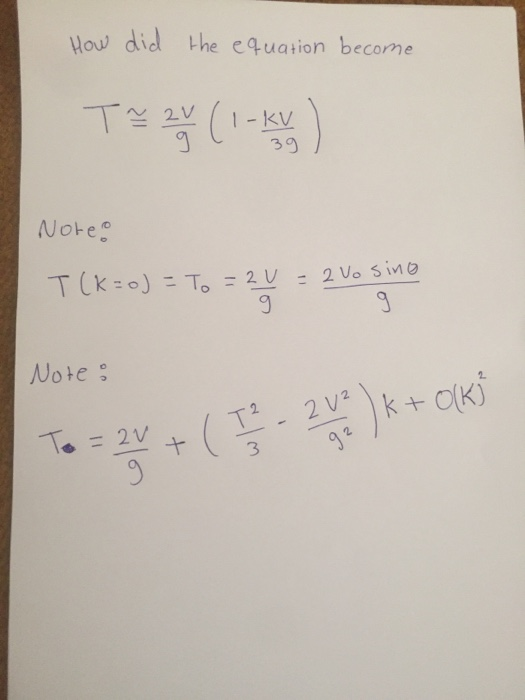 How did the equation become
T ≅ 2V/g (1 - kV/3g)
Note:
T(K=0) = T₀ = 2V/g = 2V₀ sinθ/g
Note:
T = 2V/g + (T²/3 - 2V²/g²) k + O(K)²